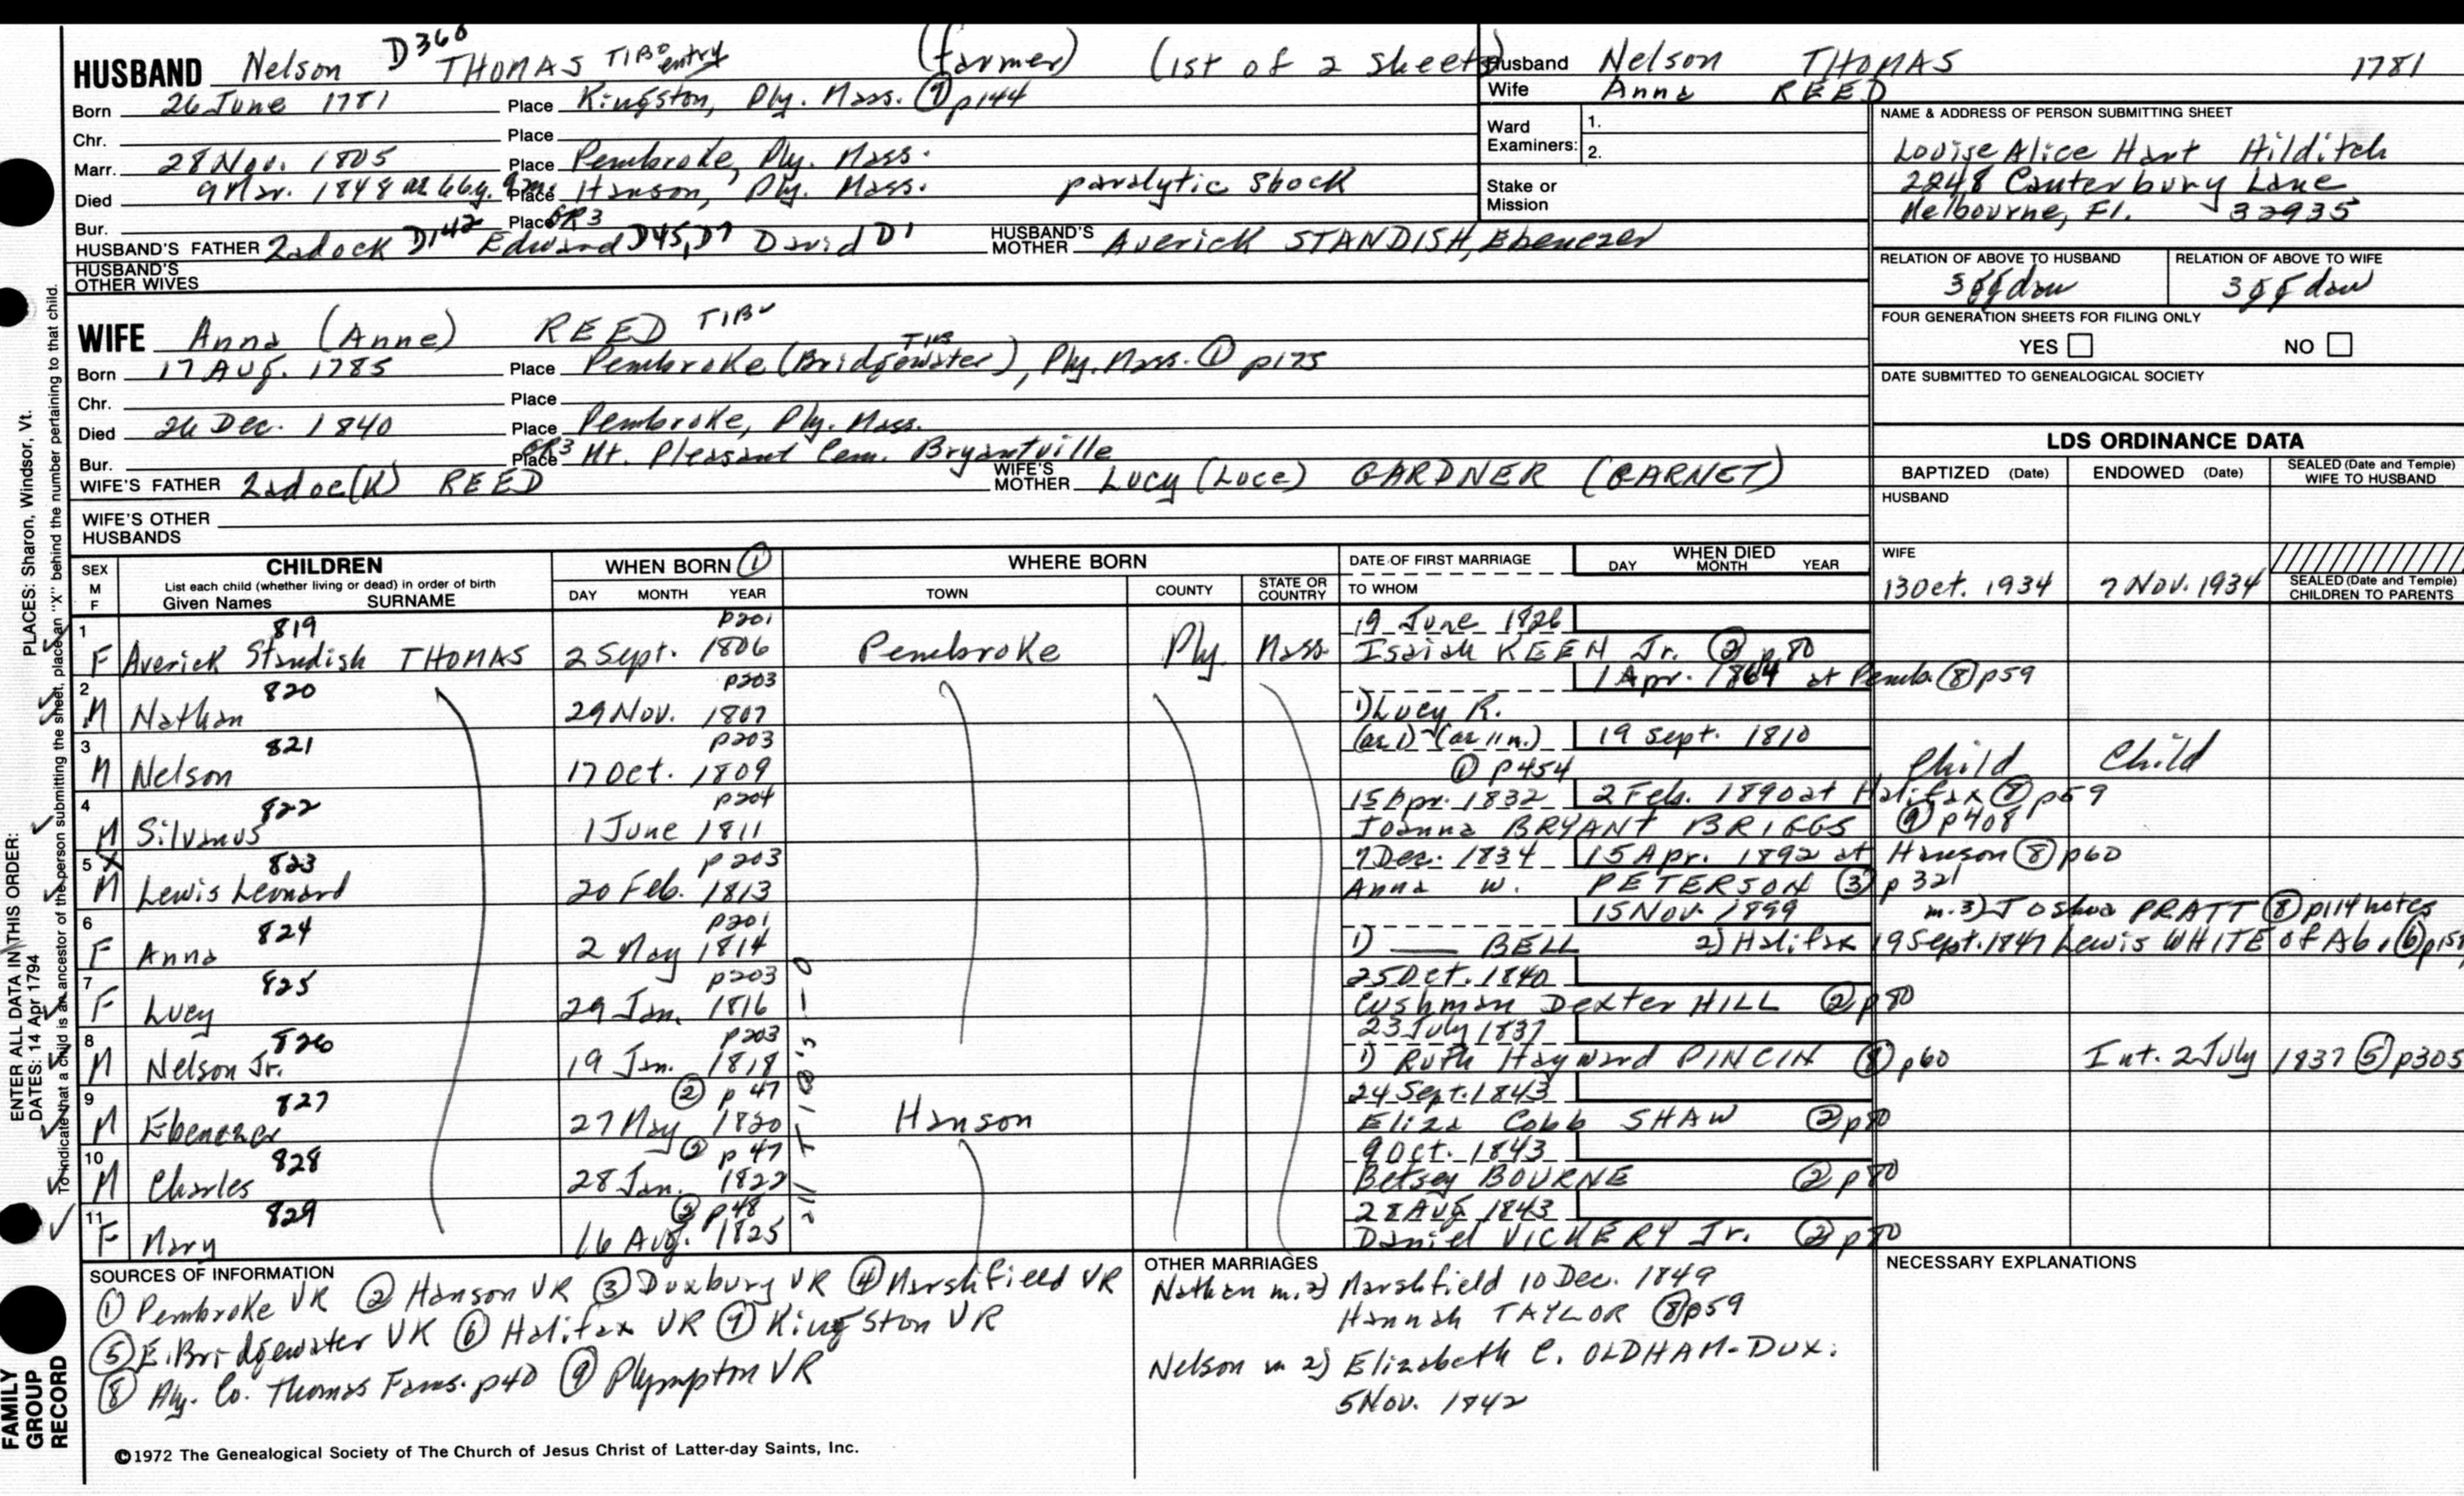 HUSBAND Nelson D360 THOMAS TIB entry (farmer) (1st of 2 sheets)
Born 26 June 1781 Place Kingston, Ply. Mass. ⑦ p144
Chr. Place
Marr. 28 Nov. 1805 Place Pembroke, Ply. Mass.
Died 9 Mar. 1848 ae 66y. 9m. Place Hanson, Ply. Mass. paralytic shock
Bur. Place GR3
HUSBAND'S FATHER Zadock D142 Edward D45, D7 David D1 HUSBAND'S MOTHER Averick STANDISH, Ebenezer
HUSBAND'S OTHER WIVES
WIFE Anna (Anne) REED TIB
Born 17 Aug. 1785 Place Pembroke (Bridgewater TIB), Ply. Mass. ① p175
Chr. Place
Died 26 Dec. 1840 Place Pembroke, Ply. Mass.
Bur. Place GR3 Mt. Pleasant Cem. Bryantville
WIFE'S FATHER Zadoc(k) REED WIFE'S MOTHER Lucy (Luce) GARDNER (GARNET)
WIFE'S OTHER HUSBANDS
Husband Nelson THOMAS 1781
Wife Anna REED
Ward Examiners: 1.
2.
Stake or Mission
NAME & ADDRESS OF PERSON SUBMITTING SHEET
Louise Alice Hart Hilditch
2248 Canterbury Lane
Melbourne, Fl. 32935
RELATION OF ABOVE TO HUSBAND RELATION OF ABOVE TO WIFE
3ggdau 3ggdau
FOUR GENERATION SHEETS FOR FILING ONLY
YES NO
DATE SUBMITTED TO GENEALOGICAL SOCIETY
LDS ORDINANCE DATA
BAPTIZED (Date) ENDOWED (Date) SEALED (Date and Temple) WIFE TO HUSBAND
HUSBAND
WIFE
13 Oct. 1934 7 Nov. 1934 SEALED (Date and Temple) CHILDREN TO PARENTS
SEX M F CHILDREN WHEN BORN ① WHERE BORN DATE OF FIRST MARRIAGE WHEN DIED DAY MONTH YEAR
List each child (whether living or dead) in order of birth
Given Names SURNAME DAY MONTH YEAR TOWN COUNTY STATE OR COUNTRY TO WHOM
1 819 p201 19 June 1826
F Averick Standish THOMAS 2 Sept. 1806 Pembroke Ply. Mass. Isaiah KEEN Jr. ② p80
2 820 p203 1 Apr. 1864 at Pemb. ⑧ p59
M Nathan 29 Nov. 1807 1) Lucy R.
3 821 p203 (ae 1) (ae 11m.) 19 Sept. 1810
M Nelson 17 Oct. 1809 ① p454 Child Child
4 822 p204 15 Apr. 1832 2 Feb. 1890 at Halifax ⑧ p59
M Silvanus 1 June 1811 Joanna BRYANT BRIGGS ⑨ p408
5 X 823 p203 7 Dec. 1834 15 Apr. 1892 at Hanson ⑧ p60
M Lewis Leonard 20 Feb. 1813 Anna W. PETERSON ③ p321
6 824 p201 15 Nov. 1899 m. 3) Joshua PRATT ⑧ p114 notes
F Anna 2 May 1814 1) —— BELL 2) Halifax 19 Sept. 1847 Lewis WHITE of Ab. ⑥ p151
7 825 p203 25 Oct. 1840
F Lucy 29 Jan. 1816 Cushman Dexter HILL ② p80
8 826 p203 23 July 1837
M Nelson Jr. 19 Jan. 1818 1) Ruth Hayward PINCIN ⑧ p60 Int. 2 July 1837 ⑤ p305
9 827 ② p47 24 Sept. 1843
M Ebenezer 27 May 1820 Hanson Eliza Cobb SHAW ② p80
10 828 ② p47 9 Oct. 1843
M Charles 28 Jan. 1822 Betsey BOURNE ② p80
11 829 ② p48 28 Aug. 1843
F Mary 16 Aug. 1825 Daniel VICKERY Jr. ② p80
all TIB's
SOURCES OF INFORMATION
① Pembroke VR ② Hanson VR ③ Duxbury VR ④ Marshfield VR
⑤ E. Bridgewater VR ⑥ Halifax VR ⑦ Kingston VR
⑧ Ply. Co. Thomas Fams. p40 ⑨ Plympton VR
OTHER MARRIAGES
Nathan m. 2) Marshfield 10 Dec. 1849
Hannah TAYLOR ⑧ p59
Nelson m 2) Elizabeth C. OLDHAM - Dux.
5 Nov. 1842
NECESSARY EXPLANATIONS
©1972 The Genealogical Society of The Church of Jesus Christ of Latter-day Saints, Inc.
FAMILY GROUP RECORD
ENTER ALL DATA IN THIS ORDER:
DATES: 14 Apr 1794
PLACES: Sharon, Windsor, Vt.
To indicate that a child is an ancestor of the person submitting the sheet, place an "X" behind the number pertaining to that child.